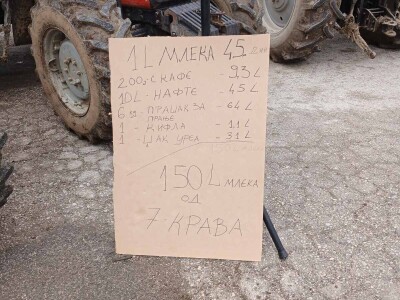 1L МЛЕКА 45 ДИН
200g С КАФЕ - 9,3 L
10L - НАФТЕ - 45 L
6 кг - ПРАШАК ЗА ПРАЊЕ - 64 L
1 - КИФЛА - 1,1 L
1 - ЏАК УРЕА - 31 L
150 L МЛЕКА
ОД
7 - КРАВА